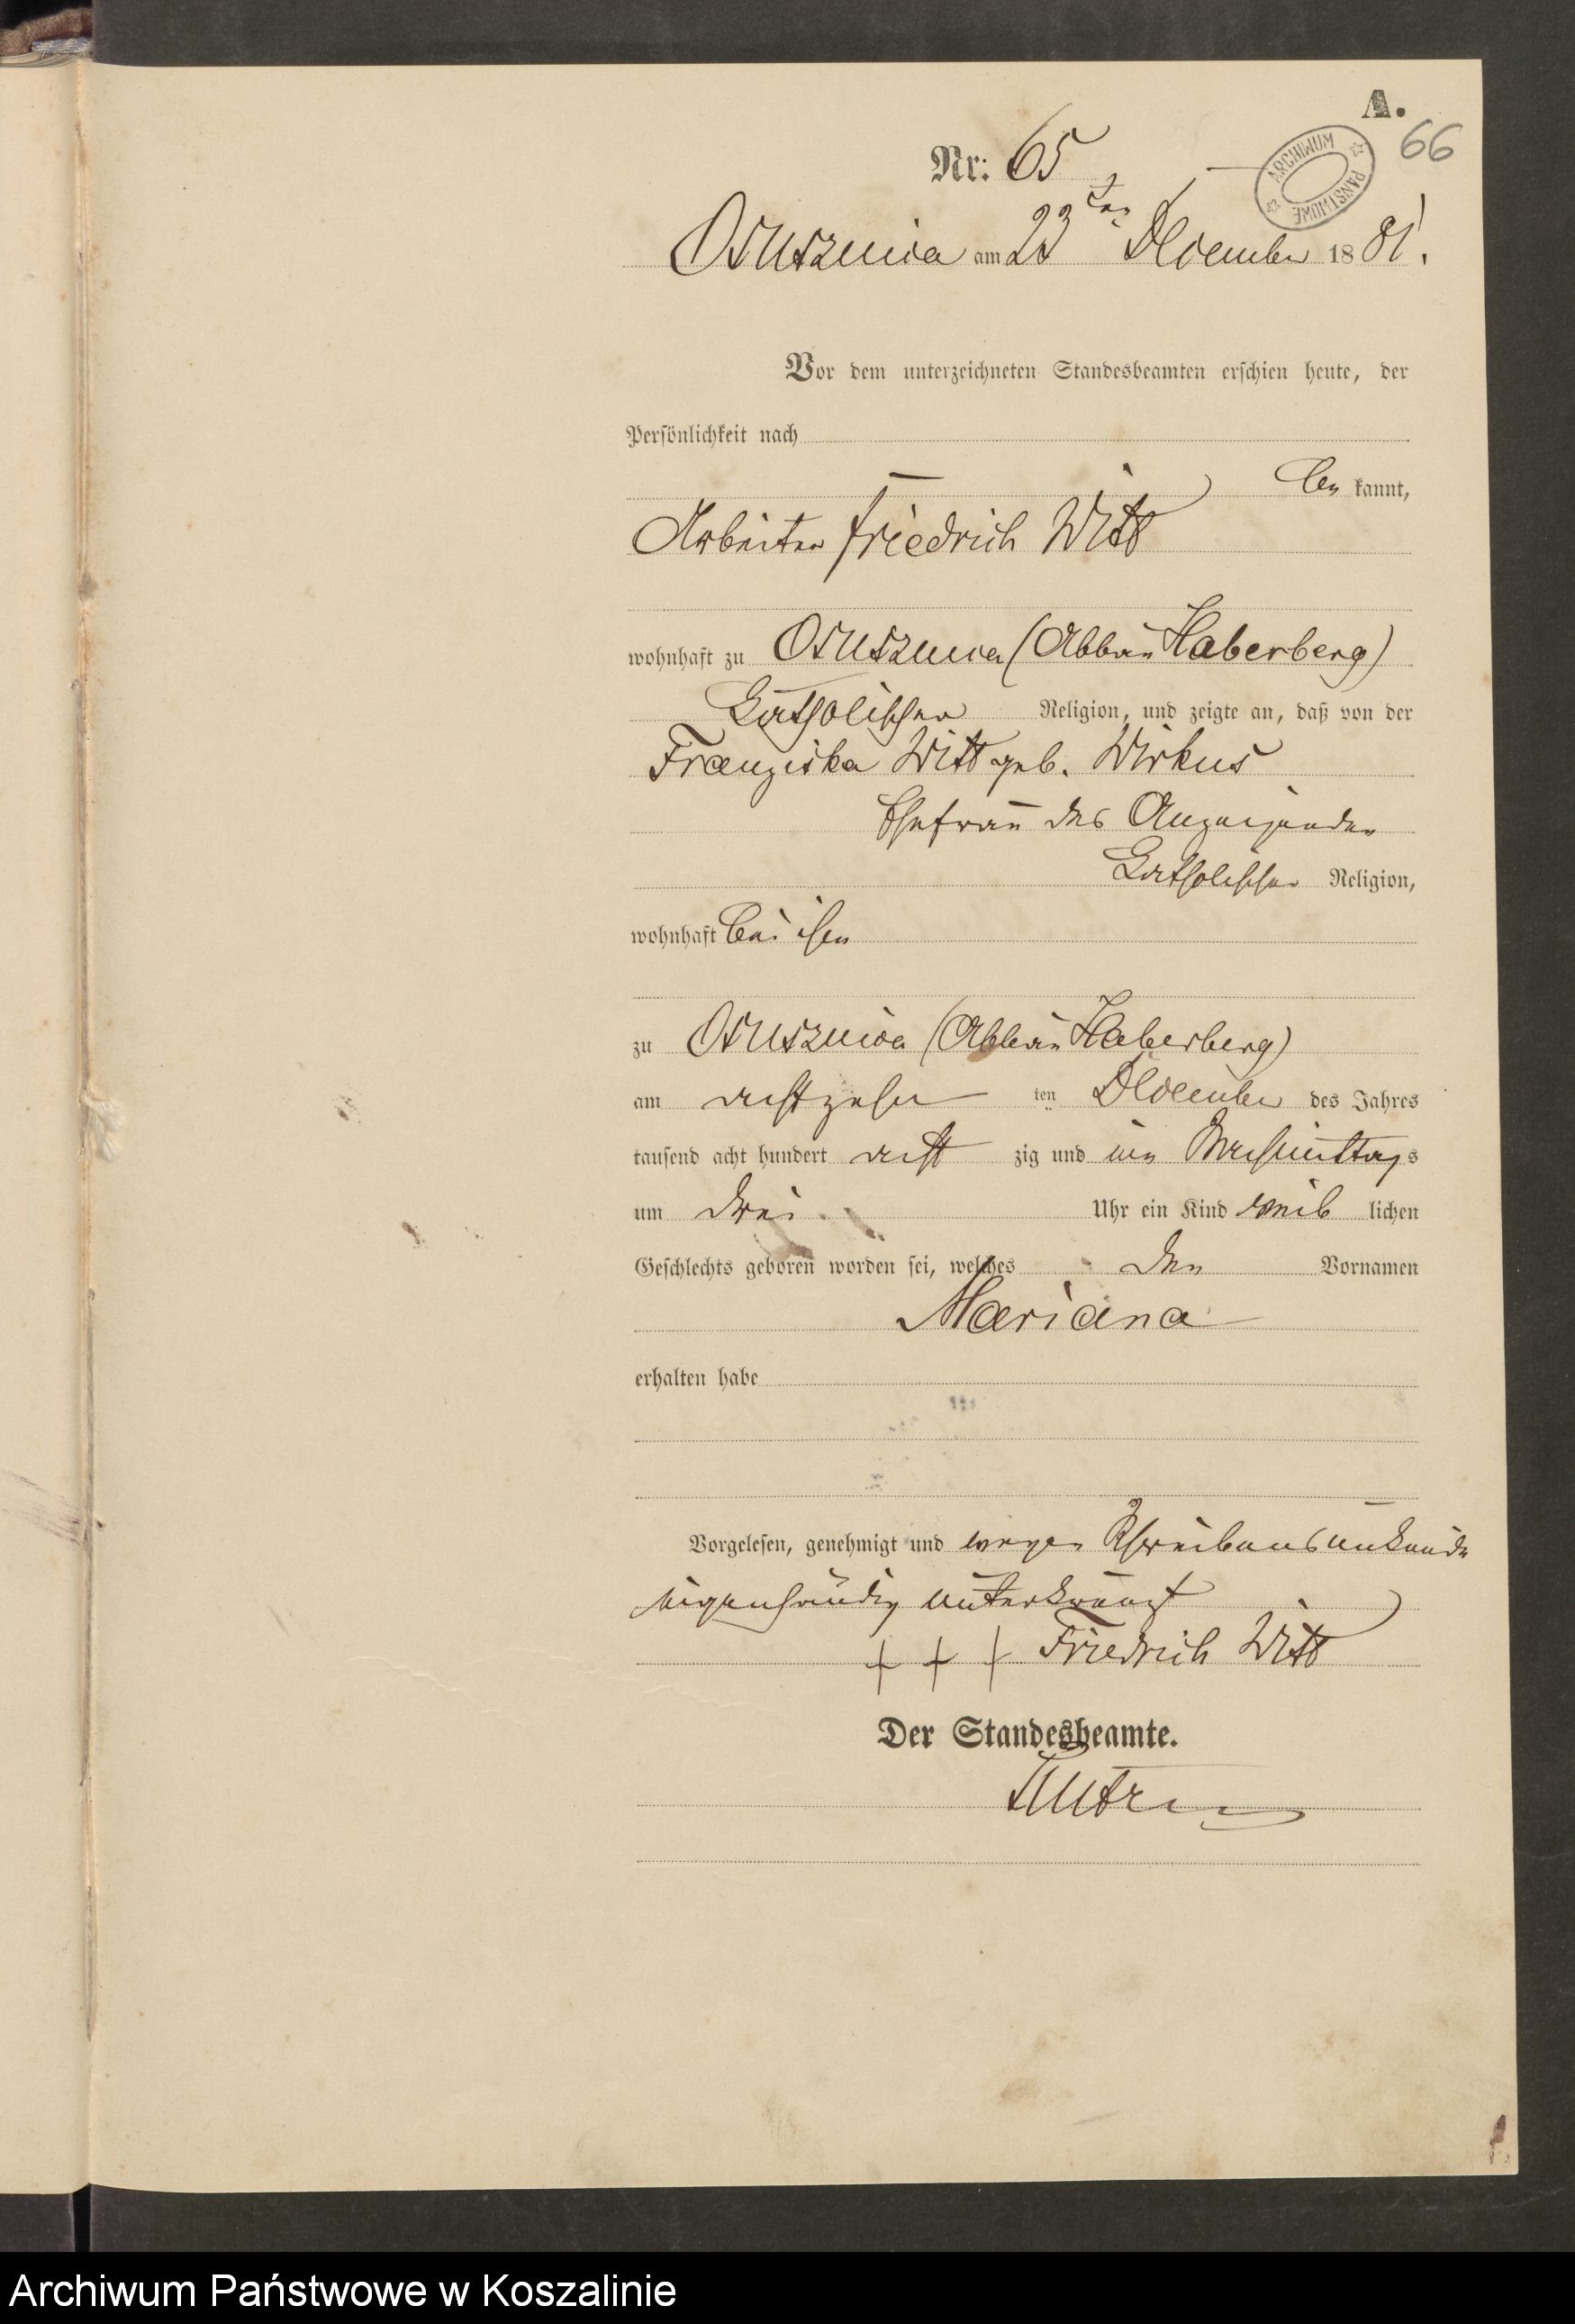 A.
66
ARCHIWUM PAŃSTWOWE
Nr: 65
Ossusznica am 23ten December 1881.
Vor dem unterzeichneten Standesbeamten erschien heute, der
Persönlichkeit nach
bekannt,
Arbeiter Friedrich Witt
wohnhaft zu Ossusznica (Abbau Haberberg)
katholischer Religion, und zeigte an, daß von der
Franziska Witt geb. Wirkus
Ehefrau des Anzeigenden
katholischer Religion,
wohnhaft bei ihm
zu Ossusznica (Abbau Haberberg)
am achtzehn ten December des Jahres
tausend acht hundert acht zig und ein Nachmittags
um drei Uhr ein Kind weib lichen
Geschlechts geboren worden sei, welches den Vornamen
Mariana
erhalten habe
Vorgelesen, genehmigt und wegen Schreibensunkunde
eigenhändig unterkreuzt
+ + + Friedrich Witt
Der Standesbeamte.
Archiwum Państwowe w Koszalinie